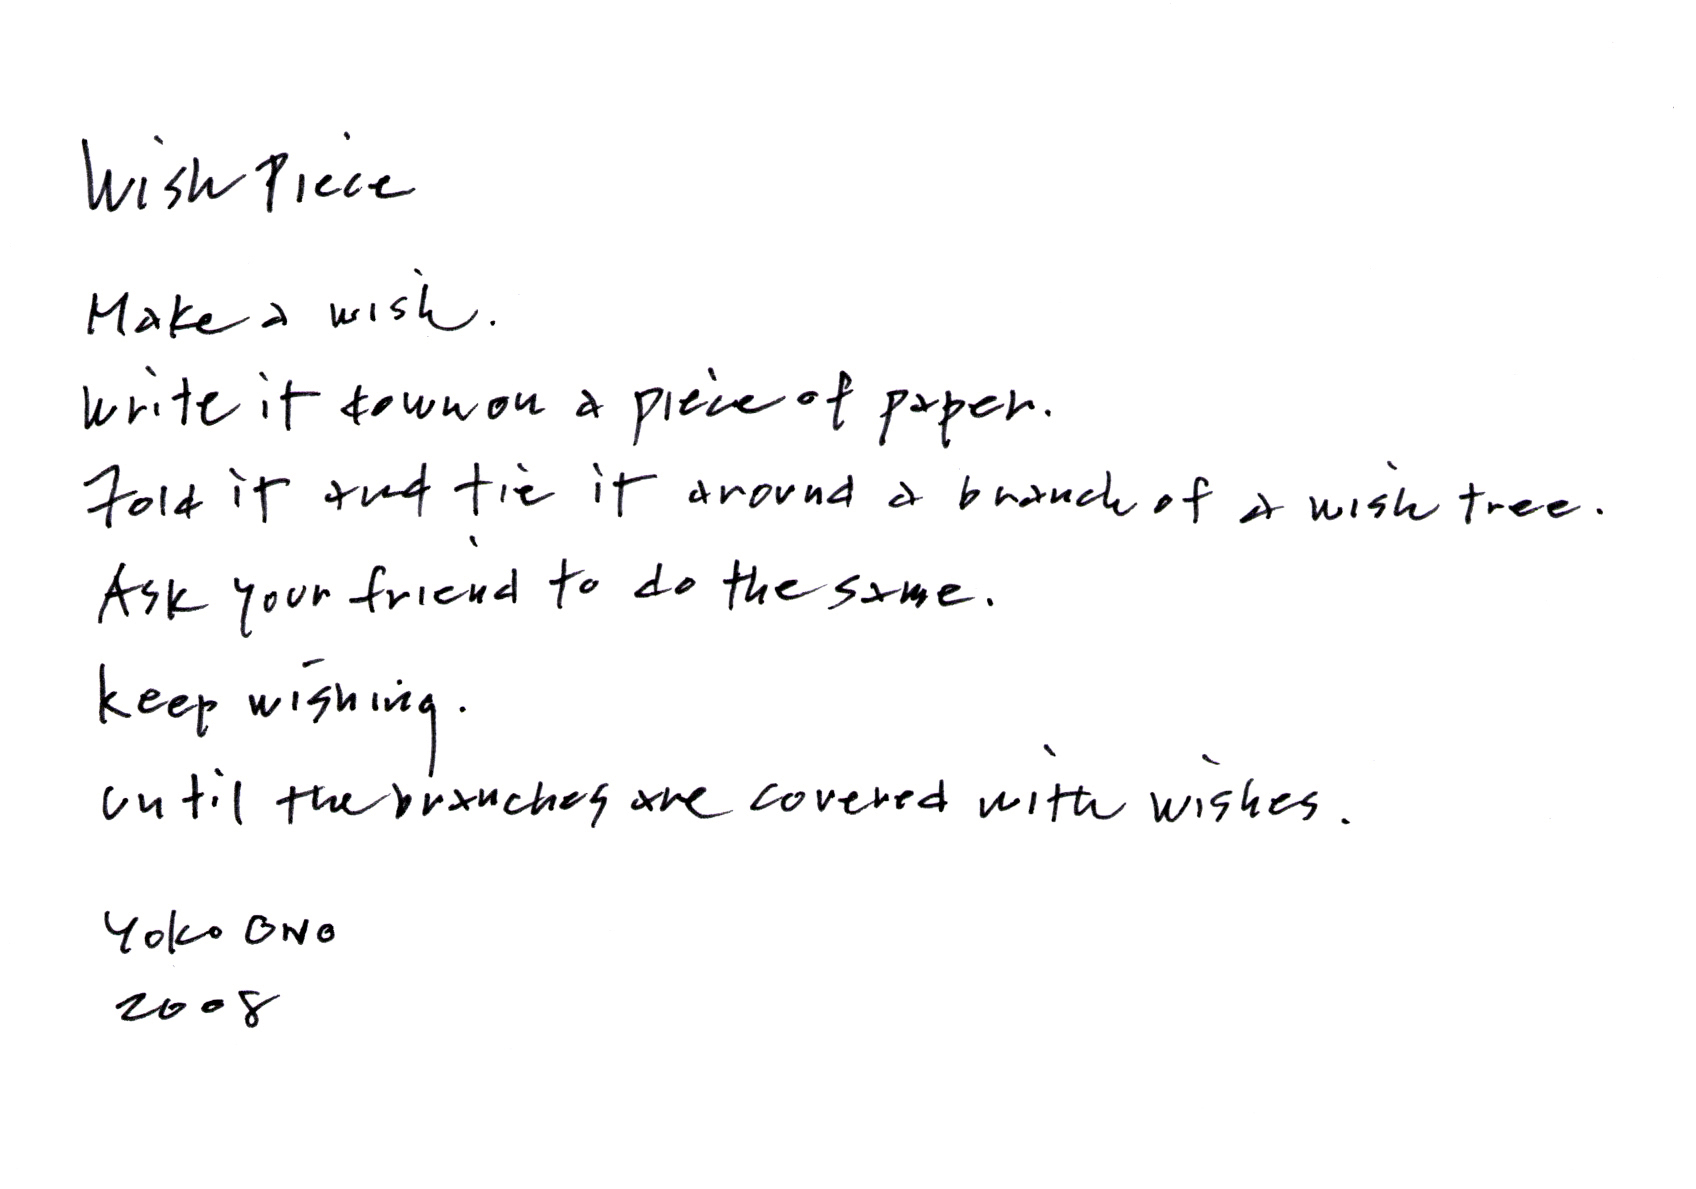 Wish Piece
Make a wish.
Write it down on a piece of paper.
Fold it and tie it around a branch of a wish tree.
Ask your friend to do the same.
Keep wishing.
Until the branches are covered with wishes.
Yoko Ono
2008